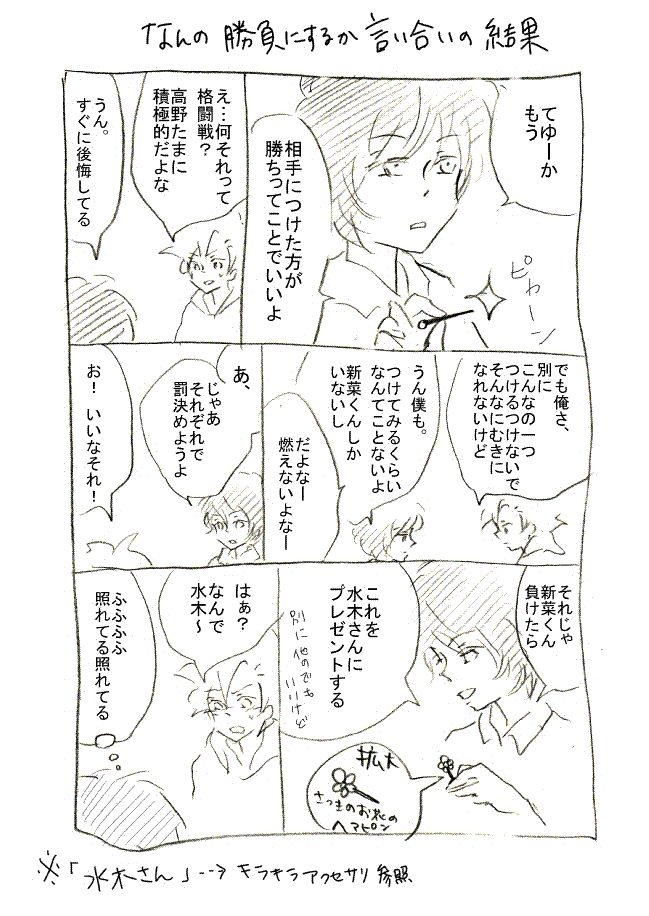 なんの勝負にするか言い合いの結果
てゆーか
もう
ピカーン
相手につけた方が
勝ちってことでいいよ
え…何それって
格闘戦？
高野たまに
積極的だよな
うん。
すぐに後悔してる
でも俺さ、
別に
こんなの一つ
つけるつけないで
そんなにむきに
なれないけど
うん僕も。
つけてみるくらい
なんてことないよ
新菜くんしか
いないし
だよなー
燃えないよなー
あ、
じゃあ
それぞれで
罰決めようよ
お！いいなそれ！
それじゃ
新菜くん
負けたら
これを
水木さんに
プレゼントする
別に他のでも
いいけど
拡大
さっきのお花の
ヘアピン
はぁ？
なんで
水木～
ふふふふ
照れてる照れてる
※「水木さん」--→キラキラアクセサリ参照